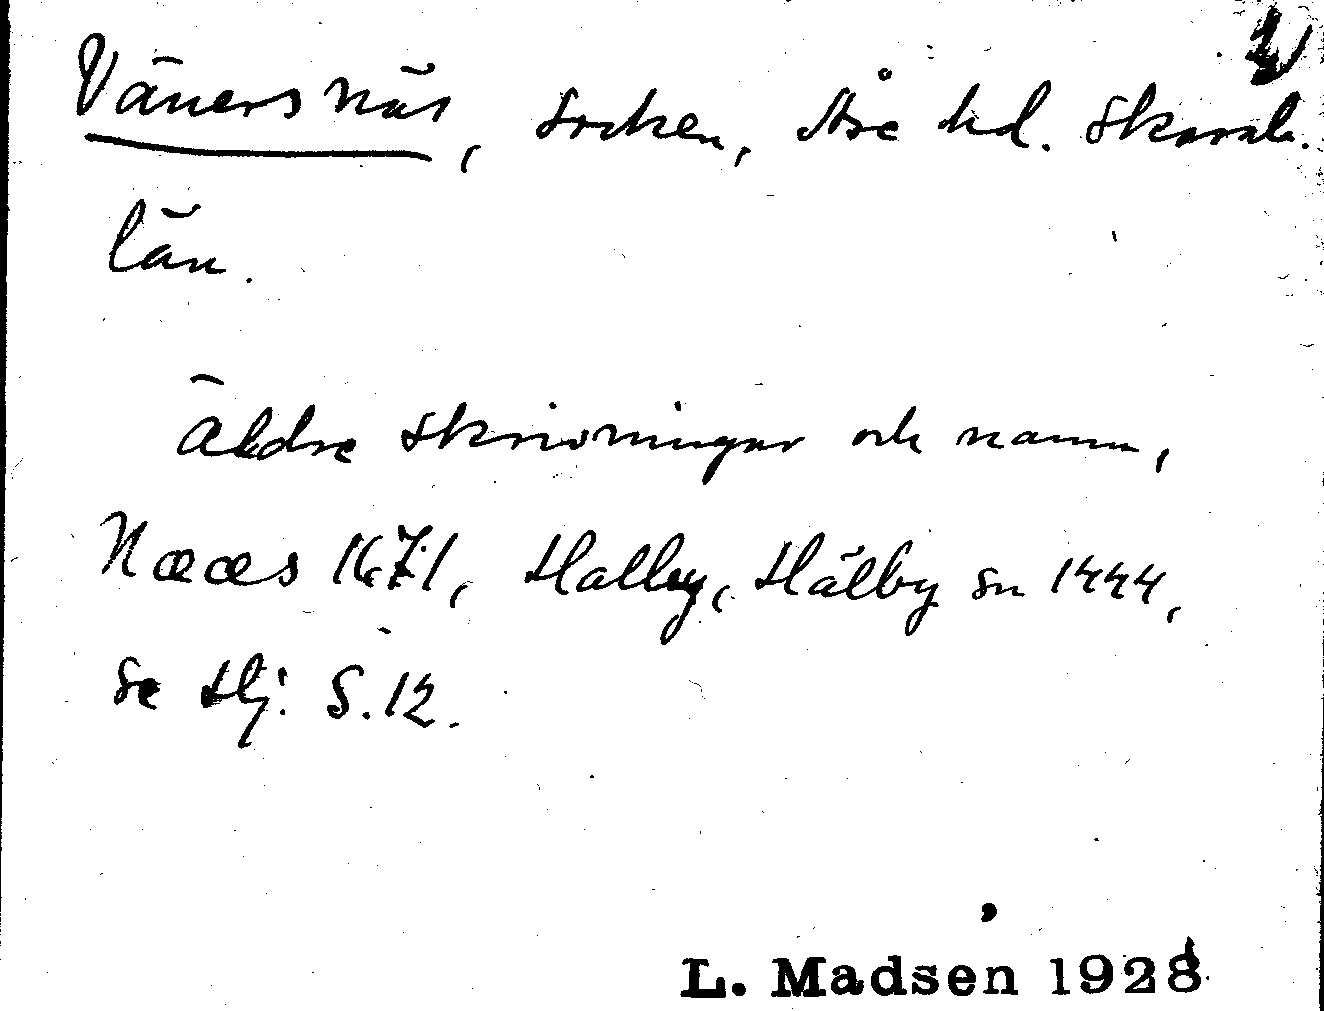 Vänersnäs, socken, Åse hd. Skarab.
län.
Äldre skrivningar och namn,
Nææs 1671, Halby, Hälby sn 1444,
se Hj. S. 12.
L. Madsen 1928